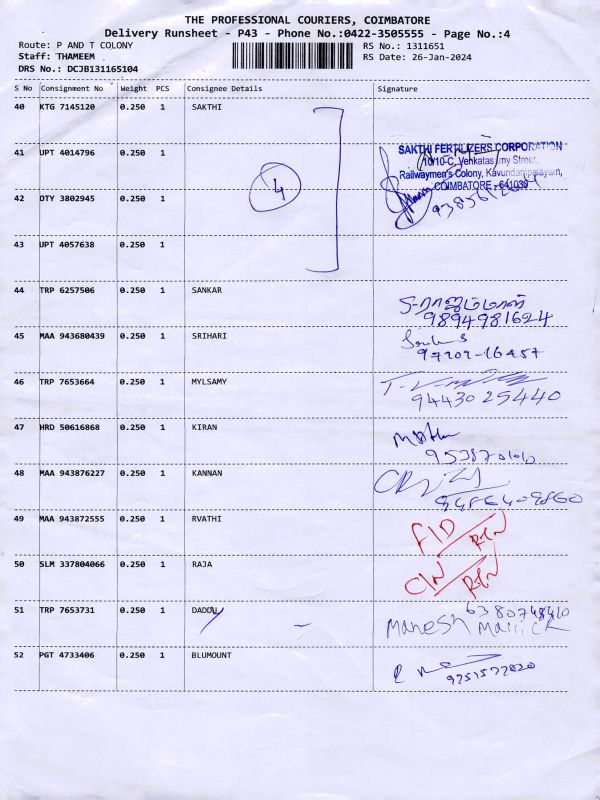 THE PROFESSIONAL COURIERS, COIMBATORE
Delivery Runsheet - P43 - Phone No.:0422-3505555 - Page No.:4
Route: P AND T COLONY RS No.: 1311651
Staff: THAMEEM RS Date: 26-Jan-2024
DRS No.: DCJB131165104
S No Consignment No Weight PCS Consignee Details Signature
40 KTG 7145120 0.250 1 SAKTHI
SAKTHI FERTILIZERS CORPORATION
41 UPT 4014796 0.250 1
10/10-C, Venkatas my Street,
Railwaymen's Colony, Kavundampalayam,
4
COIMBATORE - 641030
42 DTY 3802945 0.250 1
43 UPT 4057638 0.250 1
44 TRP 6257506 0.250 1 SANKAR
9894981624
45 MAA 943680439 0.250 1 SRIHARI
46 TRP 7653664 0.250 1 MYLSAMY
9443025440
47 HRD 50616868 0.250 1 KIRAN
48 MAA 943876227 0.250 1 KANNAN
49 MAA 943872555 0.250 1 RVATHI
F/D RTN
50 SLM 337804066 0.250 1 RAJA
C/N RTN
51 TRP 7653731 0.250 1 DADDU
6380748410
Manesh Mallick
52 PGT 4733406 0.250 1 BLUMOUNT